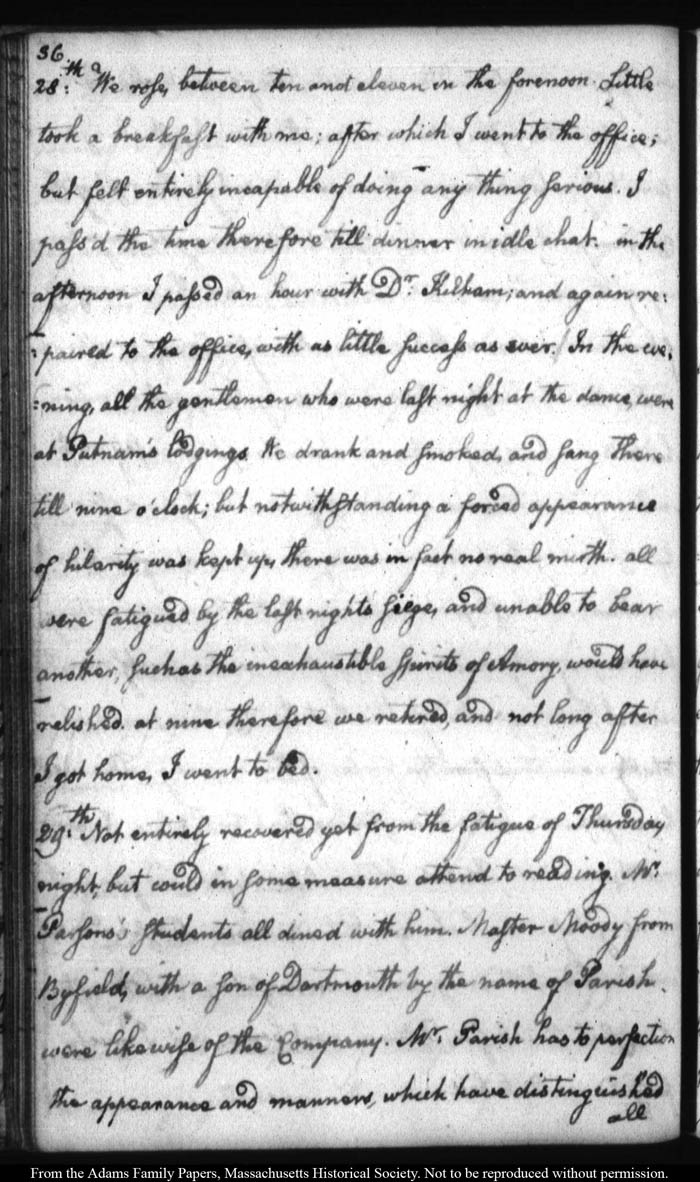 36.
28.th We rose, between ten and eleven in the forenoon. Little
took a breakfast with me; after which I went to the office;
but felt entirely incapable of doing any thing serious. I
pass'd the time therefore till dinner in idle chat. in the
afternoon I passed an hour with Dr. Kilham; and again re:
:paired to the office, with as little success as ever. In the eve:
:ning, all the gentlemen who were last night at the dance, were
at Putnam's lodgings We drank and smoked, and sang there
till nine o'clock; but notwithstanding a forced appearance
of hilarity was kept up, there was in fact no real mirth. all
were fatigued by the last nights siege, and unable to bear
another, such as the inexhaustible spirits of Amory, would have
relished. at nine therefore we retired, and not long after
I got home, I went to bed.
29.th Not entirely recovered yet from the fatigue of Thursday
night, but could in some measure attend to reading. Mr.
Parsons's students all dined with him. Master Moody from
Byfield, with a son of Dartmouth by the name of Parish.
were likewise of the Company. Mr. Parish has to perfection
the appearance and manners, which have distinguished
all
From the Adams Family Papers, Massachusetts Historical Society. Not to be reproduced without permission.